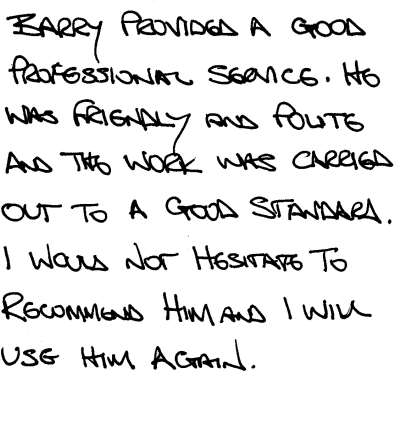 BARRY PROVIDED A GOOD
PROFESSIONAL SERVICE. HE
WAS FRIENDLY AND POLITE
AND THE WORK WAS CARRIED
OUT TO A GOOD STANDARD.
I WOULD NOT HESITATE TO
RECOMMEND HIM AND I WILL
USE HIM AGAIN.